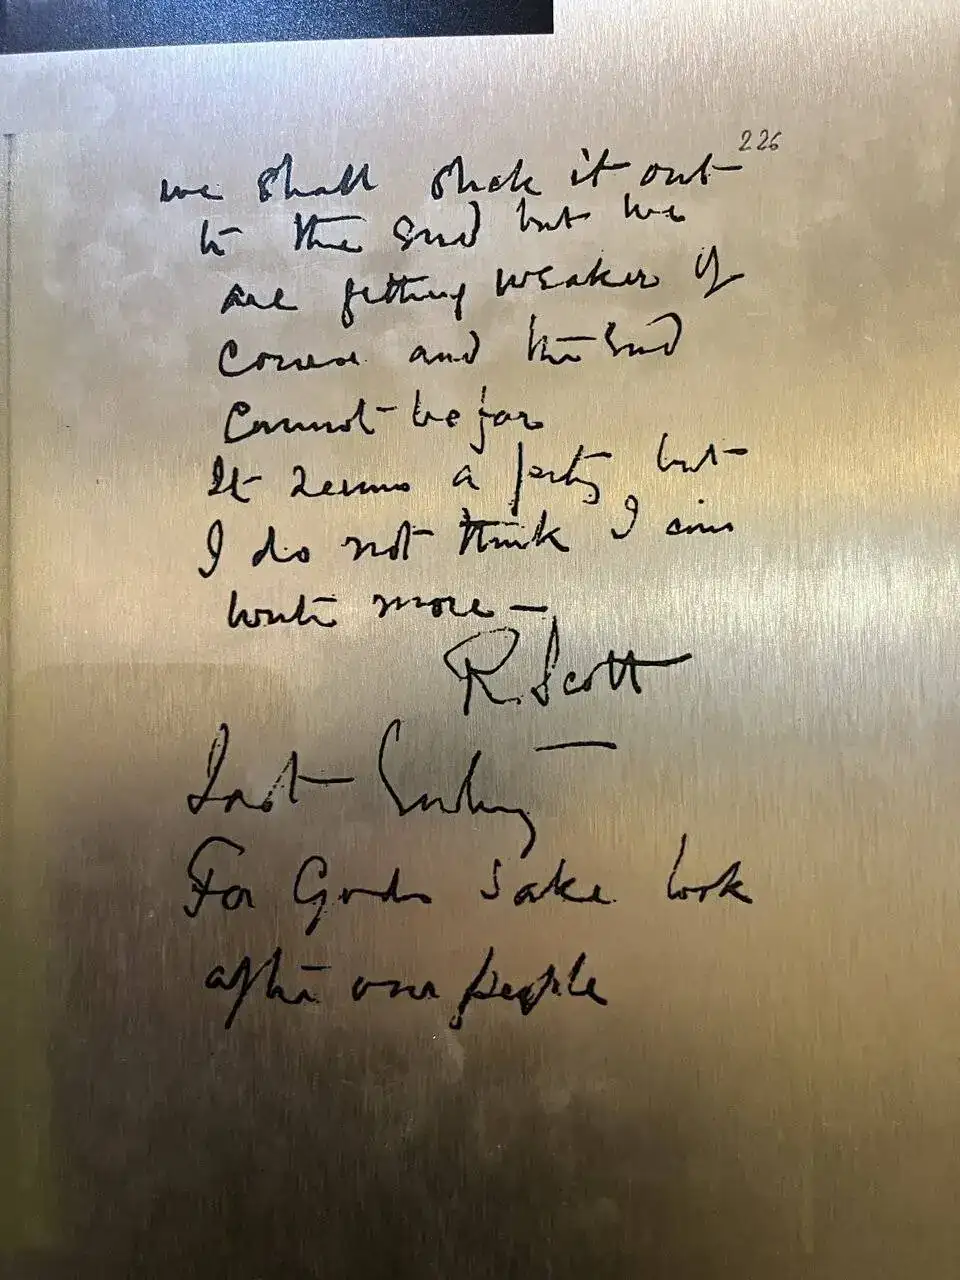 226
we shall stick it out
to the end but we
are getting weaker of
course and the end
cannot be far
It seems a pity but
I do not think I can
write more —
R. Scott
Last Entry
For Gods sake look
after our people